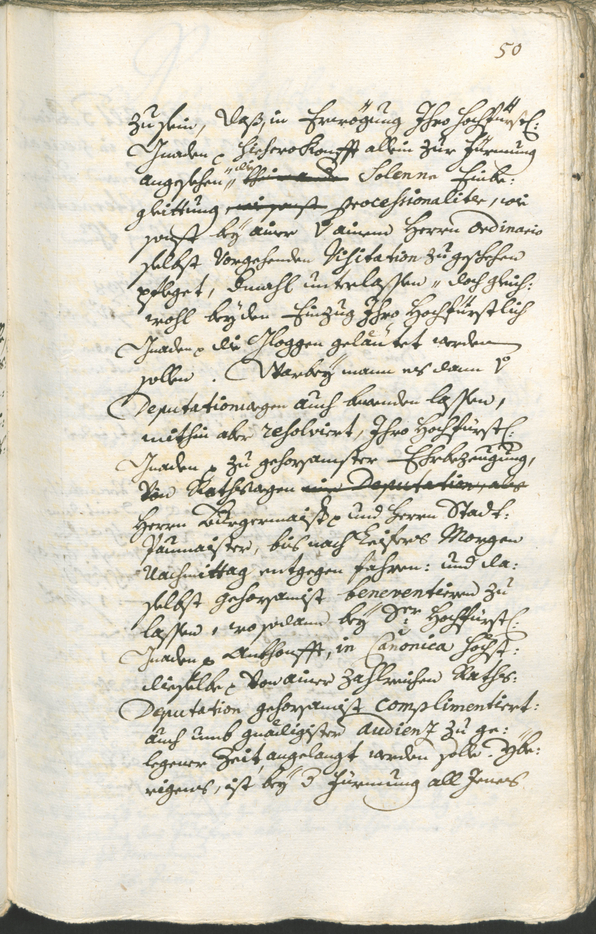 50
zu sein, daß, in Erwögung Ihro Hochfürstl:
Gnaden p hieherokonfft allein zur Fürmung
angesehen, die Solenne Einbe:
gleittung processionaliter, wie
sonst bey einer von ainem Herrn Ordinario
selbst vorgehenden Visitation zugeschehen
pfleget, dermahl unterlassen, doch gleich:
wohl bey den Einzug Ihro Hochfürstlich
Gnaden p die Gloggen geläutet werden
sollen. Warbey mann es dann
Deputationwegen auch bewenden lassen,
mithin aber resolviert, Ihro Hochfürstl:
Gnaden p zu gehorsamster Ehrbezeugung,
von Rathswegen ein Deputation, als
Herrn Burgermaister und Herrn Stadt:
Paumaister, bis nach Morgen
Nachmittag entgegen fahren: und da:
selbst gehorsamist beneventieren zu
lassen, wo sodann bey Dero Hochfürstl:
Gnaden p Ankonfft, in Canonica höchst:
dieselbe von ainer zahlreichen Raths:
Deputation gehorsamist complimentiert:
auch umb gnädigister Audienz zu ge:
legener Zeit angelangt werden solle. Ybe:
rigens, ist bey Fürmung all Jenes